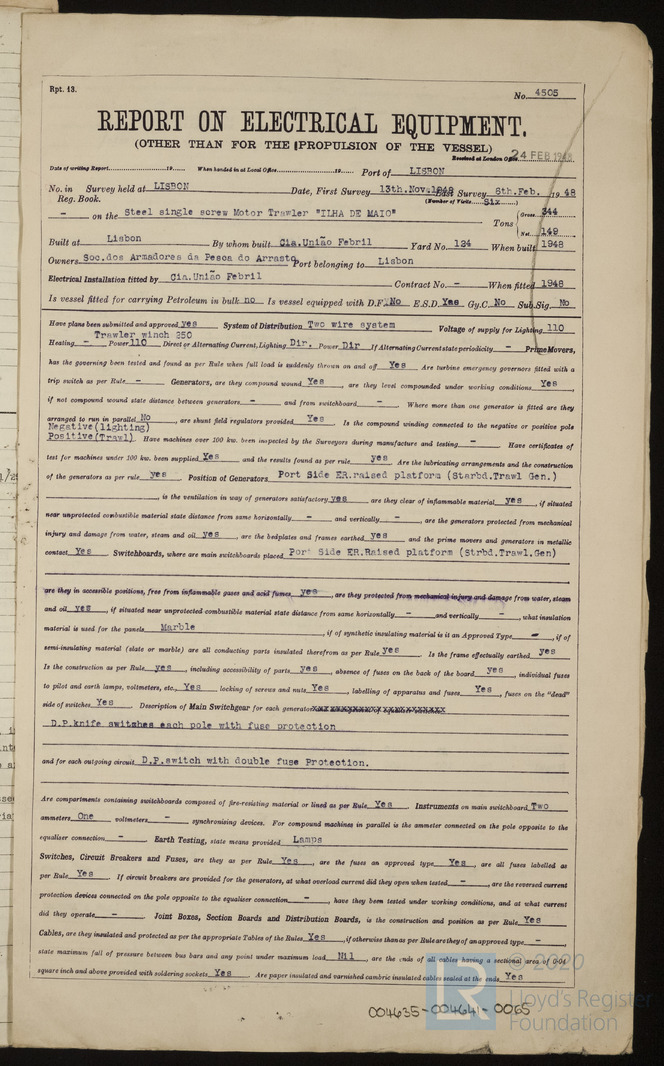 Rpt. 13.
No. 4505
REPORT ON ELECTRICAL EQUIPMENT.
(OTHER THAN FOR THE PROPULSION OF THE VESSEL)
Received at London Office 24 FEB 1948
Date of writing Report 19 When handed in at Local Office 19 Port of LISBON
No. in Survey held at LISBON Date, First Survey 13th.Nov.1948 Last Survey 8th.Feb. 1948
Reg. Book. (Number of Visits Six)
- on the Steel single screw Motor Trawler "ILHA DE MAIO" Tons Gross 344 Net 149
Built at Lisbon By whom built Cia.União Febril Yard No. 124 When built 1948
Owners Soc.dos Armadores da Pesca do Arrasto Port belonging to Lisbon
Electrical Installation fitted by Cia.União Febril Contract No. - When fitted 1948
Is vessel fitted for carrying Petroleum in bulk no Is vessel equipped with D.F. No E.S.D. Yes Gy.C. No Sub.Sig. No
Have plans been submitted and approved yes System of Distribution Two wire system Voltage of supply for Lighting 110
Trawler winch 250
Heating - Power 110 Direct or Alternating Current, Lighting Dir. Power Dir If Alternating Current state periodicity - Prime Movers,
has the governing been tested and found as per Rule when full load is suddenly thrown on and off Yes Are turbine emergency governors fitted with a
trip switch as per Rule - Generators, are they compound wound Yes, are they level compounded under working conditions Yes,
if not compound wound state distance between generators - and from switchboard - Where more than one generator is fitted are they
arranged to run in parallel No, are shunt field regulators provided Yes. Is the compound winding connected to the negative or positive pole
Negative(lighting)
Positive(Trawl). Have machines over 100 kw. been inspected by the Surveyors during manufacture and testing - Have certificates of
test for machines under 100 kw. been supplied Yes and the results found as per rule yes Are the lubricating arrangements and the construction
of the generators as per rule yes Position of Generators Port Side ER.raised platform (Starbd.Trawl Gen.)
, is the ventilation in way of generators satisfactory yes are they clear of inflammable material yes, if situated
near unprotected combustible material state distance from same horizontally - and vertically -, are the generators protected from mechanical
injury and damage from water, steam and oil yes, are the bedplates and frames earthed yes and the prime movers and generators in metallic
contact Yes Switchboards, where are main switchboards placed Port Side ER.Raised platform (Strbd.Trawl.Gen)
are they in accessible positions, free from inflammable gases and acid fumes yes, are they protected from mechanical injury and damage from water, steam
and oil yes, if situated near unprotected combustible material state distance from same horizontally - and vertically -, what insulation
material is used for the panels Marble, if of synthetic insulating material is it an Approved Type -, if of
semi-insulating material (slate or marble) are all conducting parts insulated therefrom as per Rule yes Is the frame effectually earthed yes
Is the construction as per Rule yes, including accessibility of parts yes, absence of fuses on the back of the board yes, individual fuses
to pilot and earth lamps, voltmeters, etc. Yes locking of screws and nuts Yes, labelling of apparatus and fuses Yes, fuses on the "dead"
side of switches Yes Description of Main Switchgear for each generator
D.P.knife switches each pole with fuse protection
and for each outgoing circuit D.P.switch with double fuse Protection.
Are compartments containing switchboards composed of fire-resisting material or lined as per Rule Yes Instruments on main switchboard Two
ammeters One voltmeters - synchronizing devices. For compound machines in parallel is the ammeter connected on the pole opposite to the
equaliser connection - Earth Testing, state means provided Lamps
Switches, Circuit Breakers and Fuses, are they as per Rule Yes, are the fuses an approved type Yes, are all fuses labelled as
per Rule Yes If circuit breakers are provided for the generators, at what overload current did they open when tested -, are the reversed current
protection devices connected on the pole opposite to the equaliser connection -, have they been tested under working conditions, and at what current
did they operate - Joint Boxes, Section Boards and Distribution Boards, is the construction and position as per Rule Yes
Cables, are they insulated and protected as per the appropriate Tables of the Rules Yes, if otherwise than as per Rule are they of an approved type -,
state maximum fall of pressure between bus bars and any point under maximum load Nil, are the ends of all cables having a sectional area of 0.04
square inch and above provided with soldering sockets Yes Are paper insulated and varnished cambric insulated cables sealed at the ends Yes
© 2020
Lloyd's Register
Foundation
004635-004641-0065